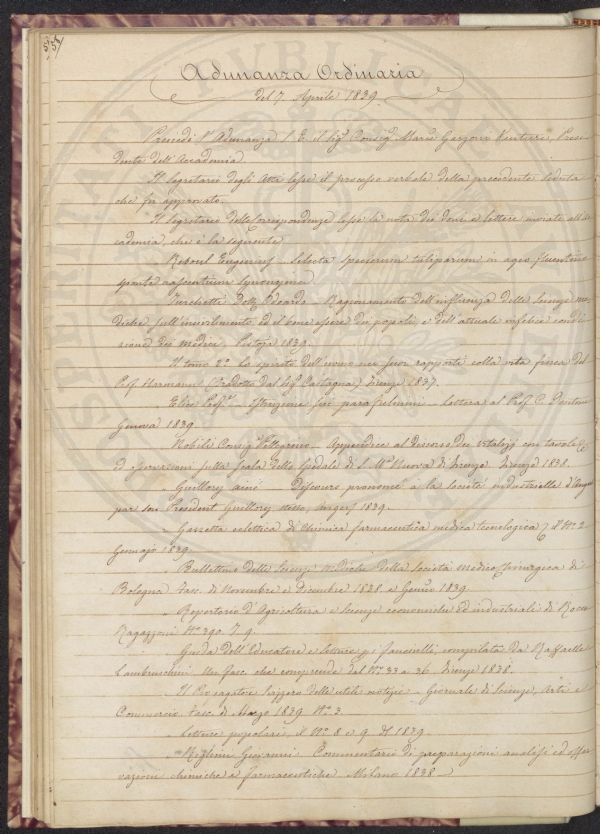 58
Adunanza Ordinaria
del 7. Aprile 1839.
Presiede l'Adunanza S. E. il Sig.r Consig.r March. Garzoni Venturi, Presi-
dente dell'Accademia
Il Segretario degli Atti lesse il processo verbale della precedente Seduta
che fu approvato.
Il Segretario delle Corrispondenze lesse la nota dei doni e lettere inviate all'Ac-
cademia, che è la seguente
Reboul Eugenius Selecta specierum tuliparum in agro florentino
sponte nascentium synonymia
Turchetti Dott.e Odoardo Ragionamento dell'influenza delle Scienze me-
diche sull'incivilimento ed il bene essere dei popoli, e dell'attuale infelice condi-
zione dei medici Pistoja 1839.
Il tomo 2.o Lo spirito dell'uomo nei suoi rapporti colla vita fisica del
Prof. Hermann (Tradotto dal Sig.r Castagna) Firenze 1837.
Elice Prof.e Istruzione sui parafulmini lettera al Prof. C. Dentone
Genova 1839.
Nobili Consig.re Pellegrino Appendice al Discorso dei Vitalizj con tavole
ed osservazioni sulla scala dello Spedale di S. M.a Nuova di Firenze Firenze 1838.
Guillory ainé Discours prononcé à la Société industrielle d'Angers
par son President Guillory Angers 1839.
Gazzetta eclettica di Chimica farmaceutica medica tecnologica N.o 2
Gennajo 1839.
Bullettino delle Scienze Mediche della Società medico chirurgica di
Bologna Fasc. di Novembre e dicembre 1838 e Genn.o 1839
Repertorio d'Agricoltura e Scienze economiche ed industriali di Rocco
Ragazzoni N.o 7. 9.
Guida dell'Educatore e letture pei fanciulli, compilata da Raffaello
Lambruschini Un fasc. che comprende dal N.o 33 a 36 Firenze 1838.
Il Propagatore Svizzero delle utili notizie Giornale di Scienze, Arti e
Commercio Fasc. di Marzo 1839 N.o 3.
Letture popolari, il N.o 8 e 9 del 1839.
Righini Giovanni Commentario di preparazioni analisi ed osser-
vazioni chimiche e farmaceutiche Milano 1838